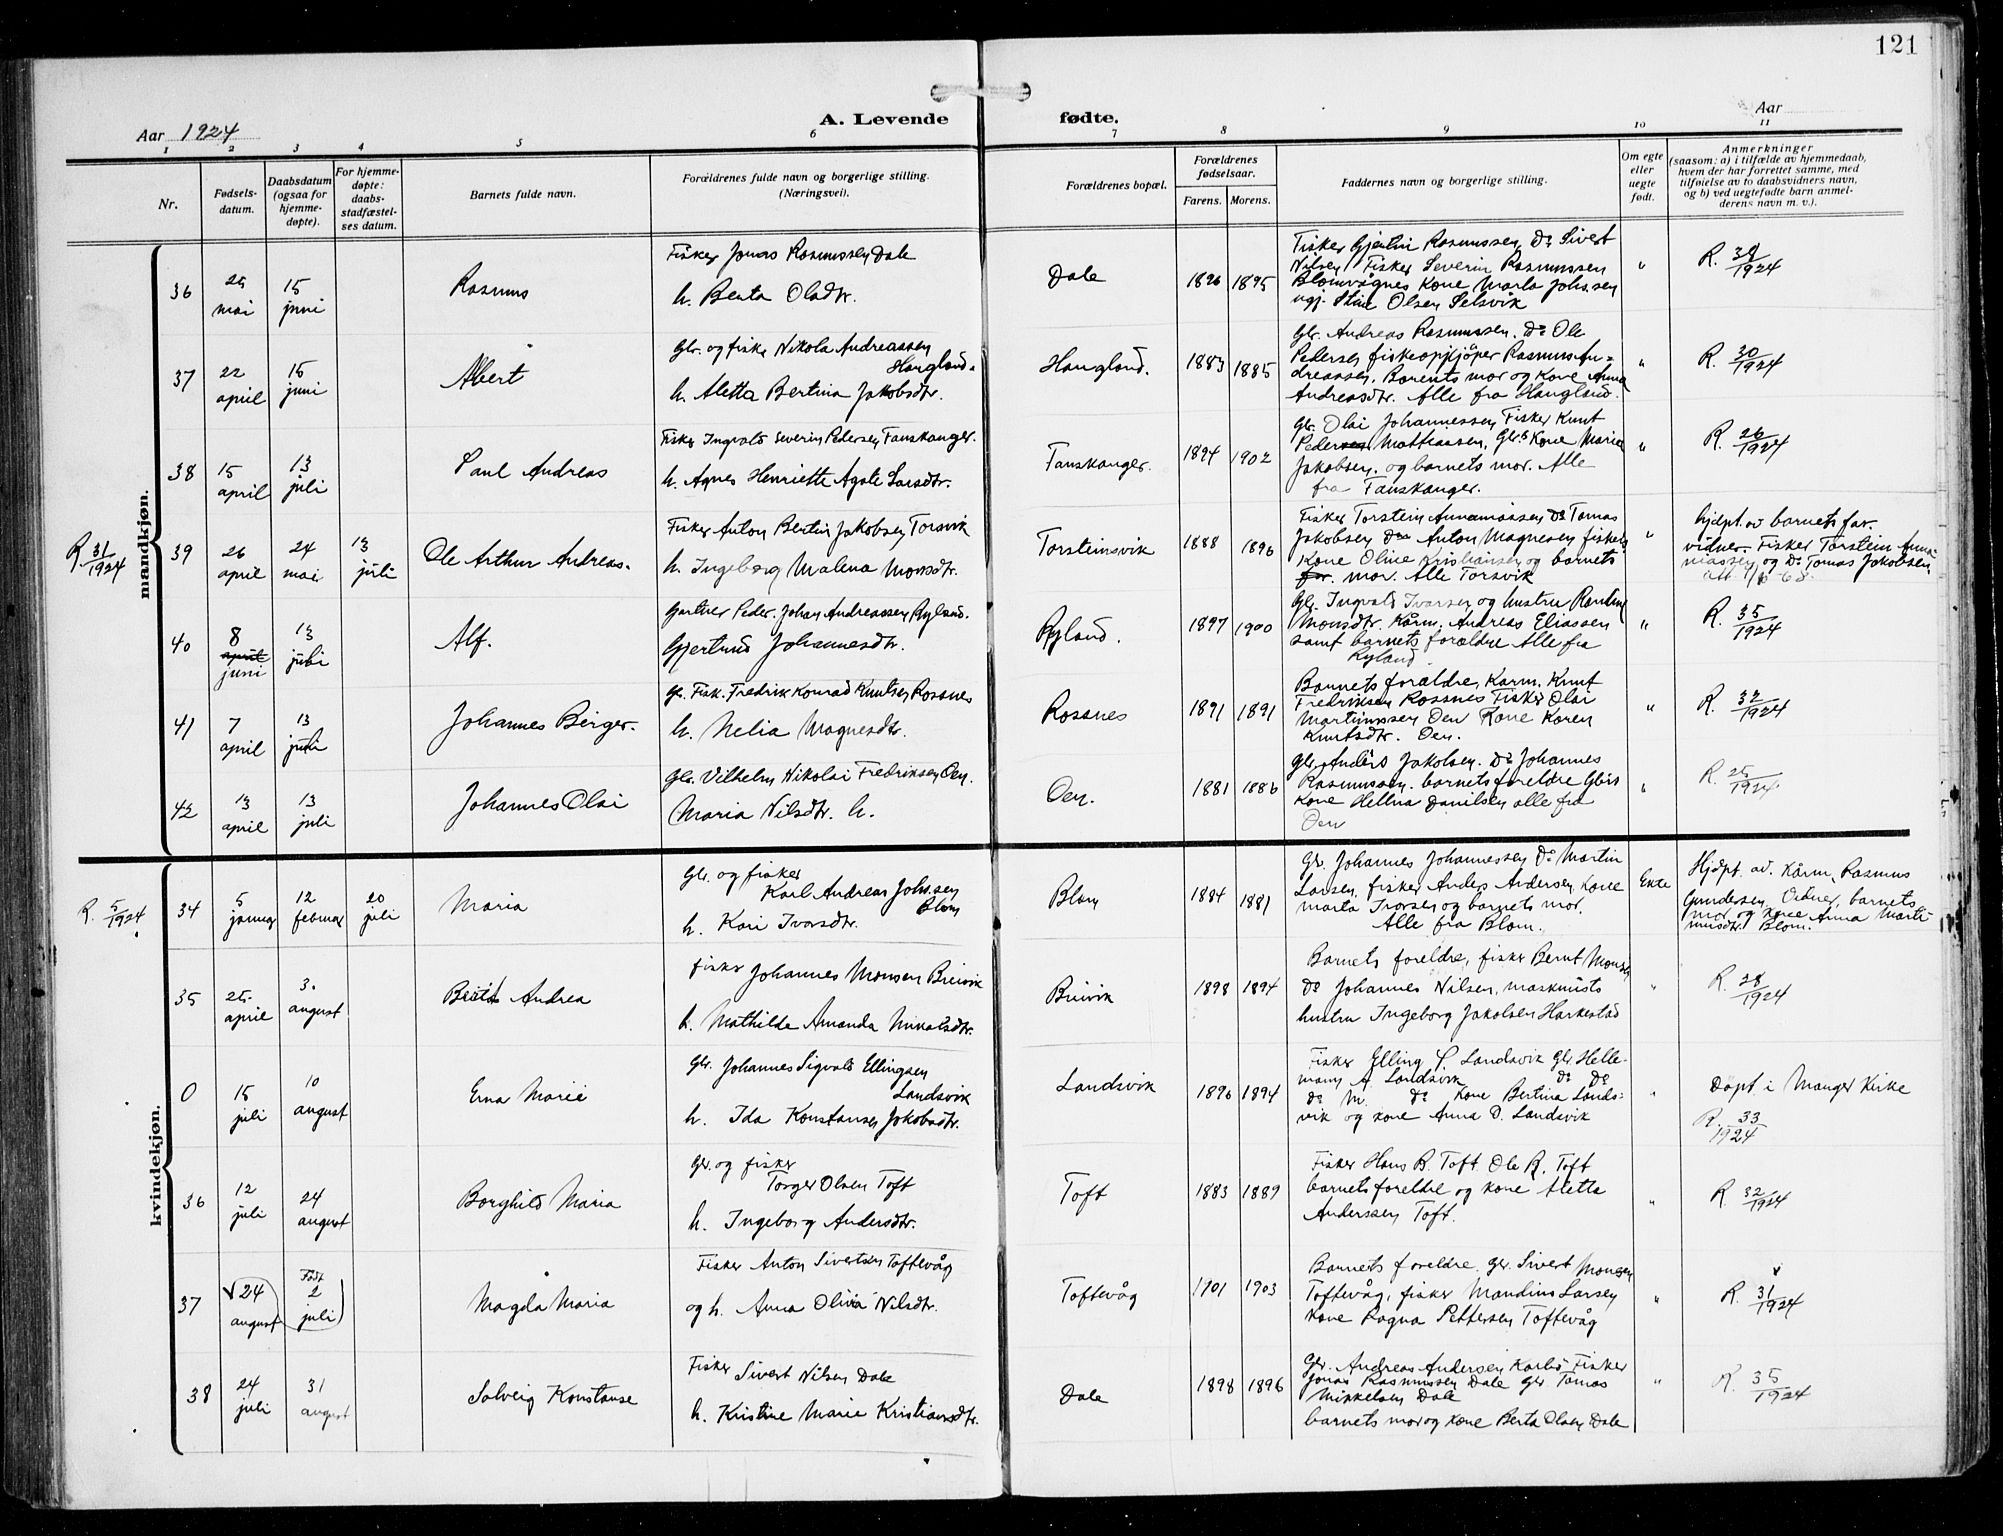 121
Aar 1924
A. Levende fødte.
Aar
1 2 3 4 5 6 7 8 9 10 11
Nr.
Fødsels-
datum.
Daabsdatum
(ogsaa for
hjemme-
døpte).
For hjemme-
døpte:
daabs-
stadfæstel-
ses datum.
Barnets fulde navn.
Forældrenes fulde navn og borgerlige stilling.
(Næringsvei).
Forældrenes bopæl.
Forældrenes
fødselsaar.
Farens. Morens.
Faddernes navn og borgerlige stilling.
Om egte
eller
uegte
født.
Anmerkninger
(saasom: a) i tilfælde av hjemmedaab,
hvem der har forrettet samme, med
tilføielse av to daabsvidners navn,
og b) ved uegtefødte barn anmel-
derens navn m. v.).
mandkjøn.
36
25
mai
15
juni
Rasmus
Fisker Jonas Rasmussen Dale
h. Berta Olsdtr.
Dale
1896 1895
Fisker Gjertin Rasmussen, Do Sivert
Nilsen, Fisker Severin Rasmussen
Blomvågnes Kone Marta Johs.sen
ugj. Stine Olsen Selsvik
"
37
22
april
15
juni
Albert
Gbr. og fisker Nikolai Andreassen
Haugland.
h. Aletta Bertina Jakobsdtr.
Haugland.
1883 1885
Gbr. Andreas Rasmussen. Do Ole
Pedersen fiskeopkjøper Rasmus An=
dreassen, Barnets mor og Kone Anna
Andreasdtr. Alle fra Haugland.
"
R. 30/1924
38
15
april
13
juli
Paul Andreas
Fisker Ingvald Severin Pedersen Fanskanger.
h. Agnes Henriette Agate Larsdtr.
Fanskanger.
1894 1902
Gbr. Olai Johannessen Fisker Knut
Pedersen Mathiassen, Gbr.s Kone Maria
Jakobsen. og barnets mor. Alle
fra Fanskanger.
"
R. 26/1924
R. 31/1924
39
26
april
24
mai
13
juli
Ole Arthur Andreas.
Fisker Anton Bertin Jakobsen Torsvik
h. Ingeborg Malena Monsdtr.
Torsteinsvik
1888 1896
Fisker Torstein Annanassen Do Tomas
Jakobsen Do Anton Magnesen fiskers
Kone Oline Kristiansen og barnets
far. mor. Alle Torsvik
"
hjdpt. av barnets far.
vidner. Fisker Torstein Anna-
niassen og Do Tomas Jakobsen
40
8
april
juni
13
juli
Alf.
Gartner Peder Johan Andreassen Ryland.
Gjertrud Johannesdtr.
Ryland.
1897 1900
Gbr. Ingvald Ivarsen og hustru Randina
Monsdtr. Kårm. Andreas Eliassen
samt barnets forældre Alle fra
Ryland.
"
R. 35/1924
41
7
april
13
juli
Johannes Berger.
G. Fisk. Fredrik Konrad Knutsen Rossnes
h. Nelia Magnesdtr.
Rossnes
1891 1891
Barnets forældre, Karm. Knut
Fredriksen Rossnes Fisker Olai
Martinussen Oen Kone Karen
Knutsdtr. Oen.
"
42
13
april
13
juli
Johannes Olai
Gbr. Vilhelm Nikolai Fredriksen Oen.
Maria Nilsdtr. h.
Oen.
1881 1886
Gbr. Anders Jakobsen. Do Johannes
Rasmussen. barnets foreldre Gbrs
Kone Hellna Danilsen alle fra
Oen
"
R. 25/1924
kvindekjøn.
R. 5/1924
34
5
januar
12
februar
20
juli
Maria
Gbr. og fisker
Karl Andreas Johs.sen
Blom
h. Kari Ivarsdtr.
Blom
1884 1881
Gbr. Johannes Johannessen Do Martin
Larsen, fisker Anders Andersen, kone
Marta Ivarsen og barnets mor.
Alle fra Blom.
Ekte
Hjdpt. av. Kårm. Rasmus
Gundersen, Vidner, barnets
mor og kone Anna Marti-
nusdtr. Blom.
35
25
april
3.
august
Berta Andrea
fisker Johannes Monsen Breivik
h. Mathilde Amanda Nikolaisdtr.
Breivik
1898 1894
Barnets foreldre, fisker Bernt Monsen
Do Johannes Nilsen, maskinists
hustru Ingeborg Jakobsen Harkestad
"
R. 28/1924
0
15
juli
10
august
Erna Marie
Gbr. Johannes Sigvald Ellingsen
Landsvik
h. Ida Konstanse Jakobsdtr.
Landsvik
1896 1894
Fisker Elling P. Landsvik Gbr. Helle-
mann A. Landsvik Do Do
Do M. Do Kone Bertina Lands-
vik og kone Anna D. Landsvik
"
Døpt i Manger Kirke
R. 33/1924
36
12
juli
24
august
Borghild Maria
Gbr. og fisker
Torger Olsen Toft
h. Ingeborg Andersdtr.
Toft
1883 1889
Fisker Hans B. Toft. Ole R. Toft
barnets foreldre og kone Aletta
Anderssen Toft.
"
R. 32/1924
37
24
august
Født
2
juli
Magda Maria
Fisker Anton Sivertsen Toftevåg
og h. Anna Olivia Nilsdtr.
Toftevåg
1901 1903
Barnets foreldre. Gbr. Sivert Monsen
Toftevåg, fisker Mandius Larsen
kone Ragna Pettersen Toftevåg
"
R. 31/1924
38
24
juli
31
august
Solveig Konstanse
Fisker Sivert Nilsen Dale
h. Kristine Marie Kristiansdtr.
Dale
1898 1896
Gbr. Andreas Andersen Karlsø Fisker
Jonas Rasmussen Dale Gbr. Tomas
Mikkelsen Dale
barnets mor og kone Berta Olsen Dale
"
R. 35/1924